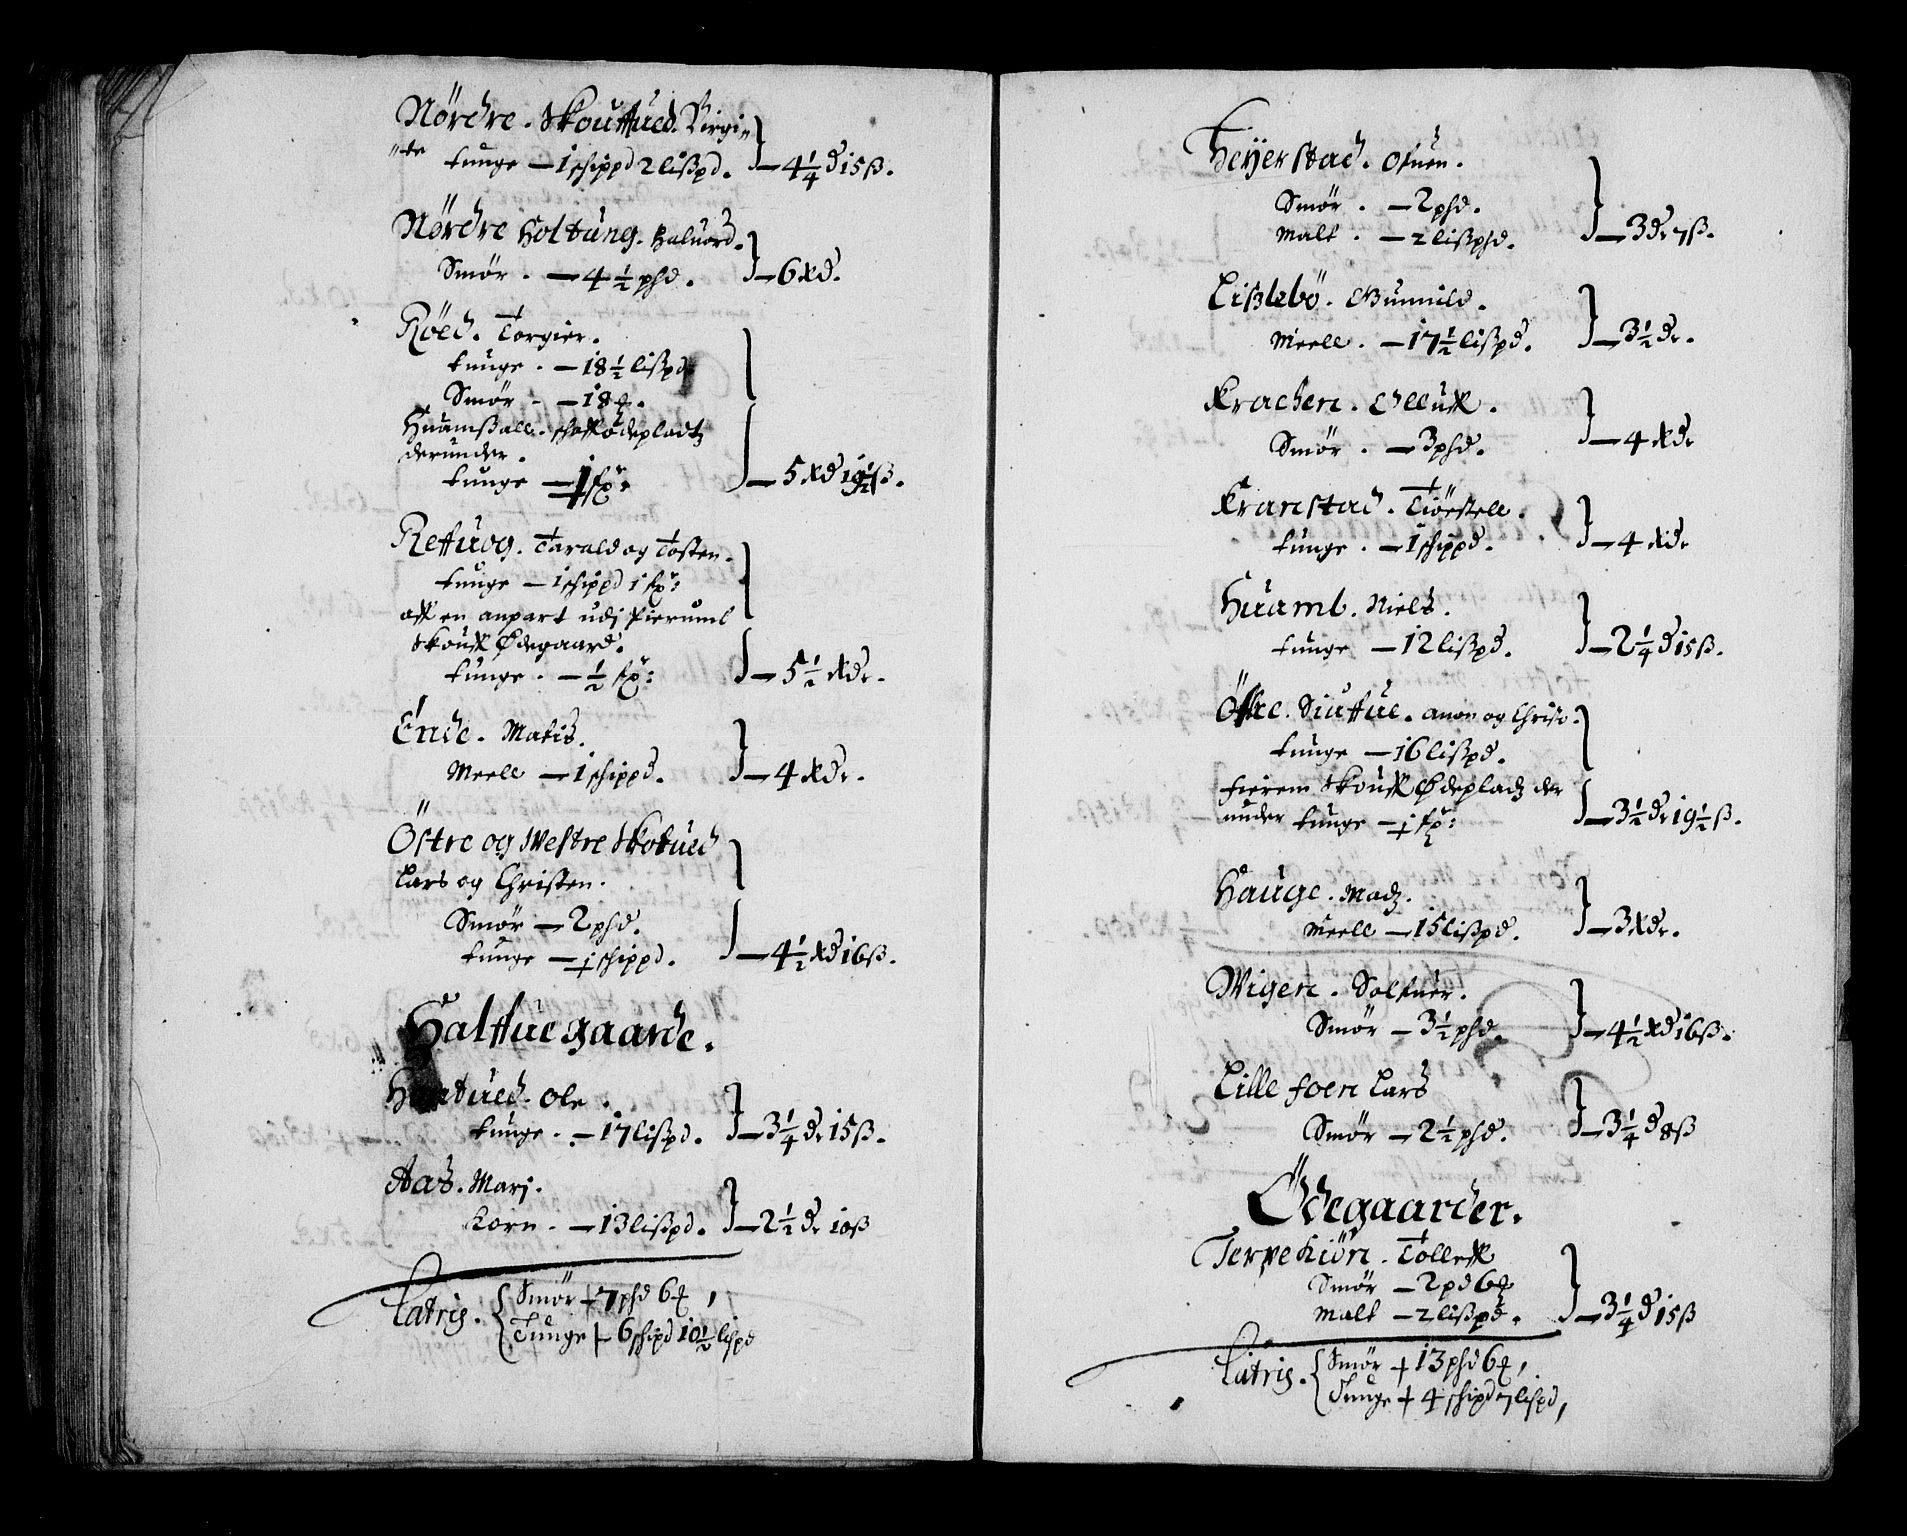 Nördre. Skouffued. Virgi„
„te tunge — 1 schippd 2 lißpd. — 4¼ d 15ß.
Nördre Holtung. Haluord.
Smör. — 4½ phd. — 6 Rd.
Röed. Torgier.
tunge. — 18½ lißpd
Smör — 18
Huamßall. schaff ödepladtz
derunder.
tunge — 1 fr: — 5 Rd 19½ß.
Reffuog. Tarald og Tosten.
tunge — 1 schippd 1 fr:
aff en anpart udj Fierumb
Skouff Ødegaard.
tunge. — ½ fr: — 5½ Rdr.
Ende. Matis.
Meell — 1 schippd. — 4 Rdr.
Östre og Westre Skotued
Lars og Christen.
Smör — 2 phd.
tunge — 1 schippd. — 4½ Rd 16ß.
Halffue gaarde.
tued. Ole.
tunge. — 17 lißpd. — 3¼ dr 15ß.
Aas. Marj.
Korn. — 13 lißpd. — 2½ dr 10ß
Latris. Smör + 7 phd 6
Tunge + 6 schipd 10½ lispd
Heyerstad. Ofuen.
Smör. — 2 phd.
Malt. — 2 lißphd. — 3 dr 7ß.
Lißlebö. Gunnild.
Meell. — 17½ lißpd. — 3½ dr.
Kracken. Olluff.
Smör. — 3 phd. — 4 Rdr
Kranstad. Tiöstell.
tunge. — 1 schippd. — 4 Rdr
Huamb. Niels.
tunge — 12 lißpd. — 2¼ d 15ß.
Öffre. Siuffue. Anon og Christ.
tunge — 16 lißpd.
Fierem Skouff Ødepladz der
under tunge — 1 fr: — 3½ dr 19½ß.
Hauge. Madz.
Meell — 15 lißpd. — 3 Rdr.
Wigen. Solfuer.
Smör — 3½ phd. — 4½ Rd 16ß.
Lille foen Lars
Smör — 2½ phd. — 3¼ d 8ß
Ödegaarder.
Terpekiön. Tolleff
Smör — 2 pd 6
Malt — 2 lißpd. — 3¼ d 15ß
Latris. Smör + 13 phd 6
Tunge + 4 schipd 7 lispd,